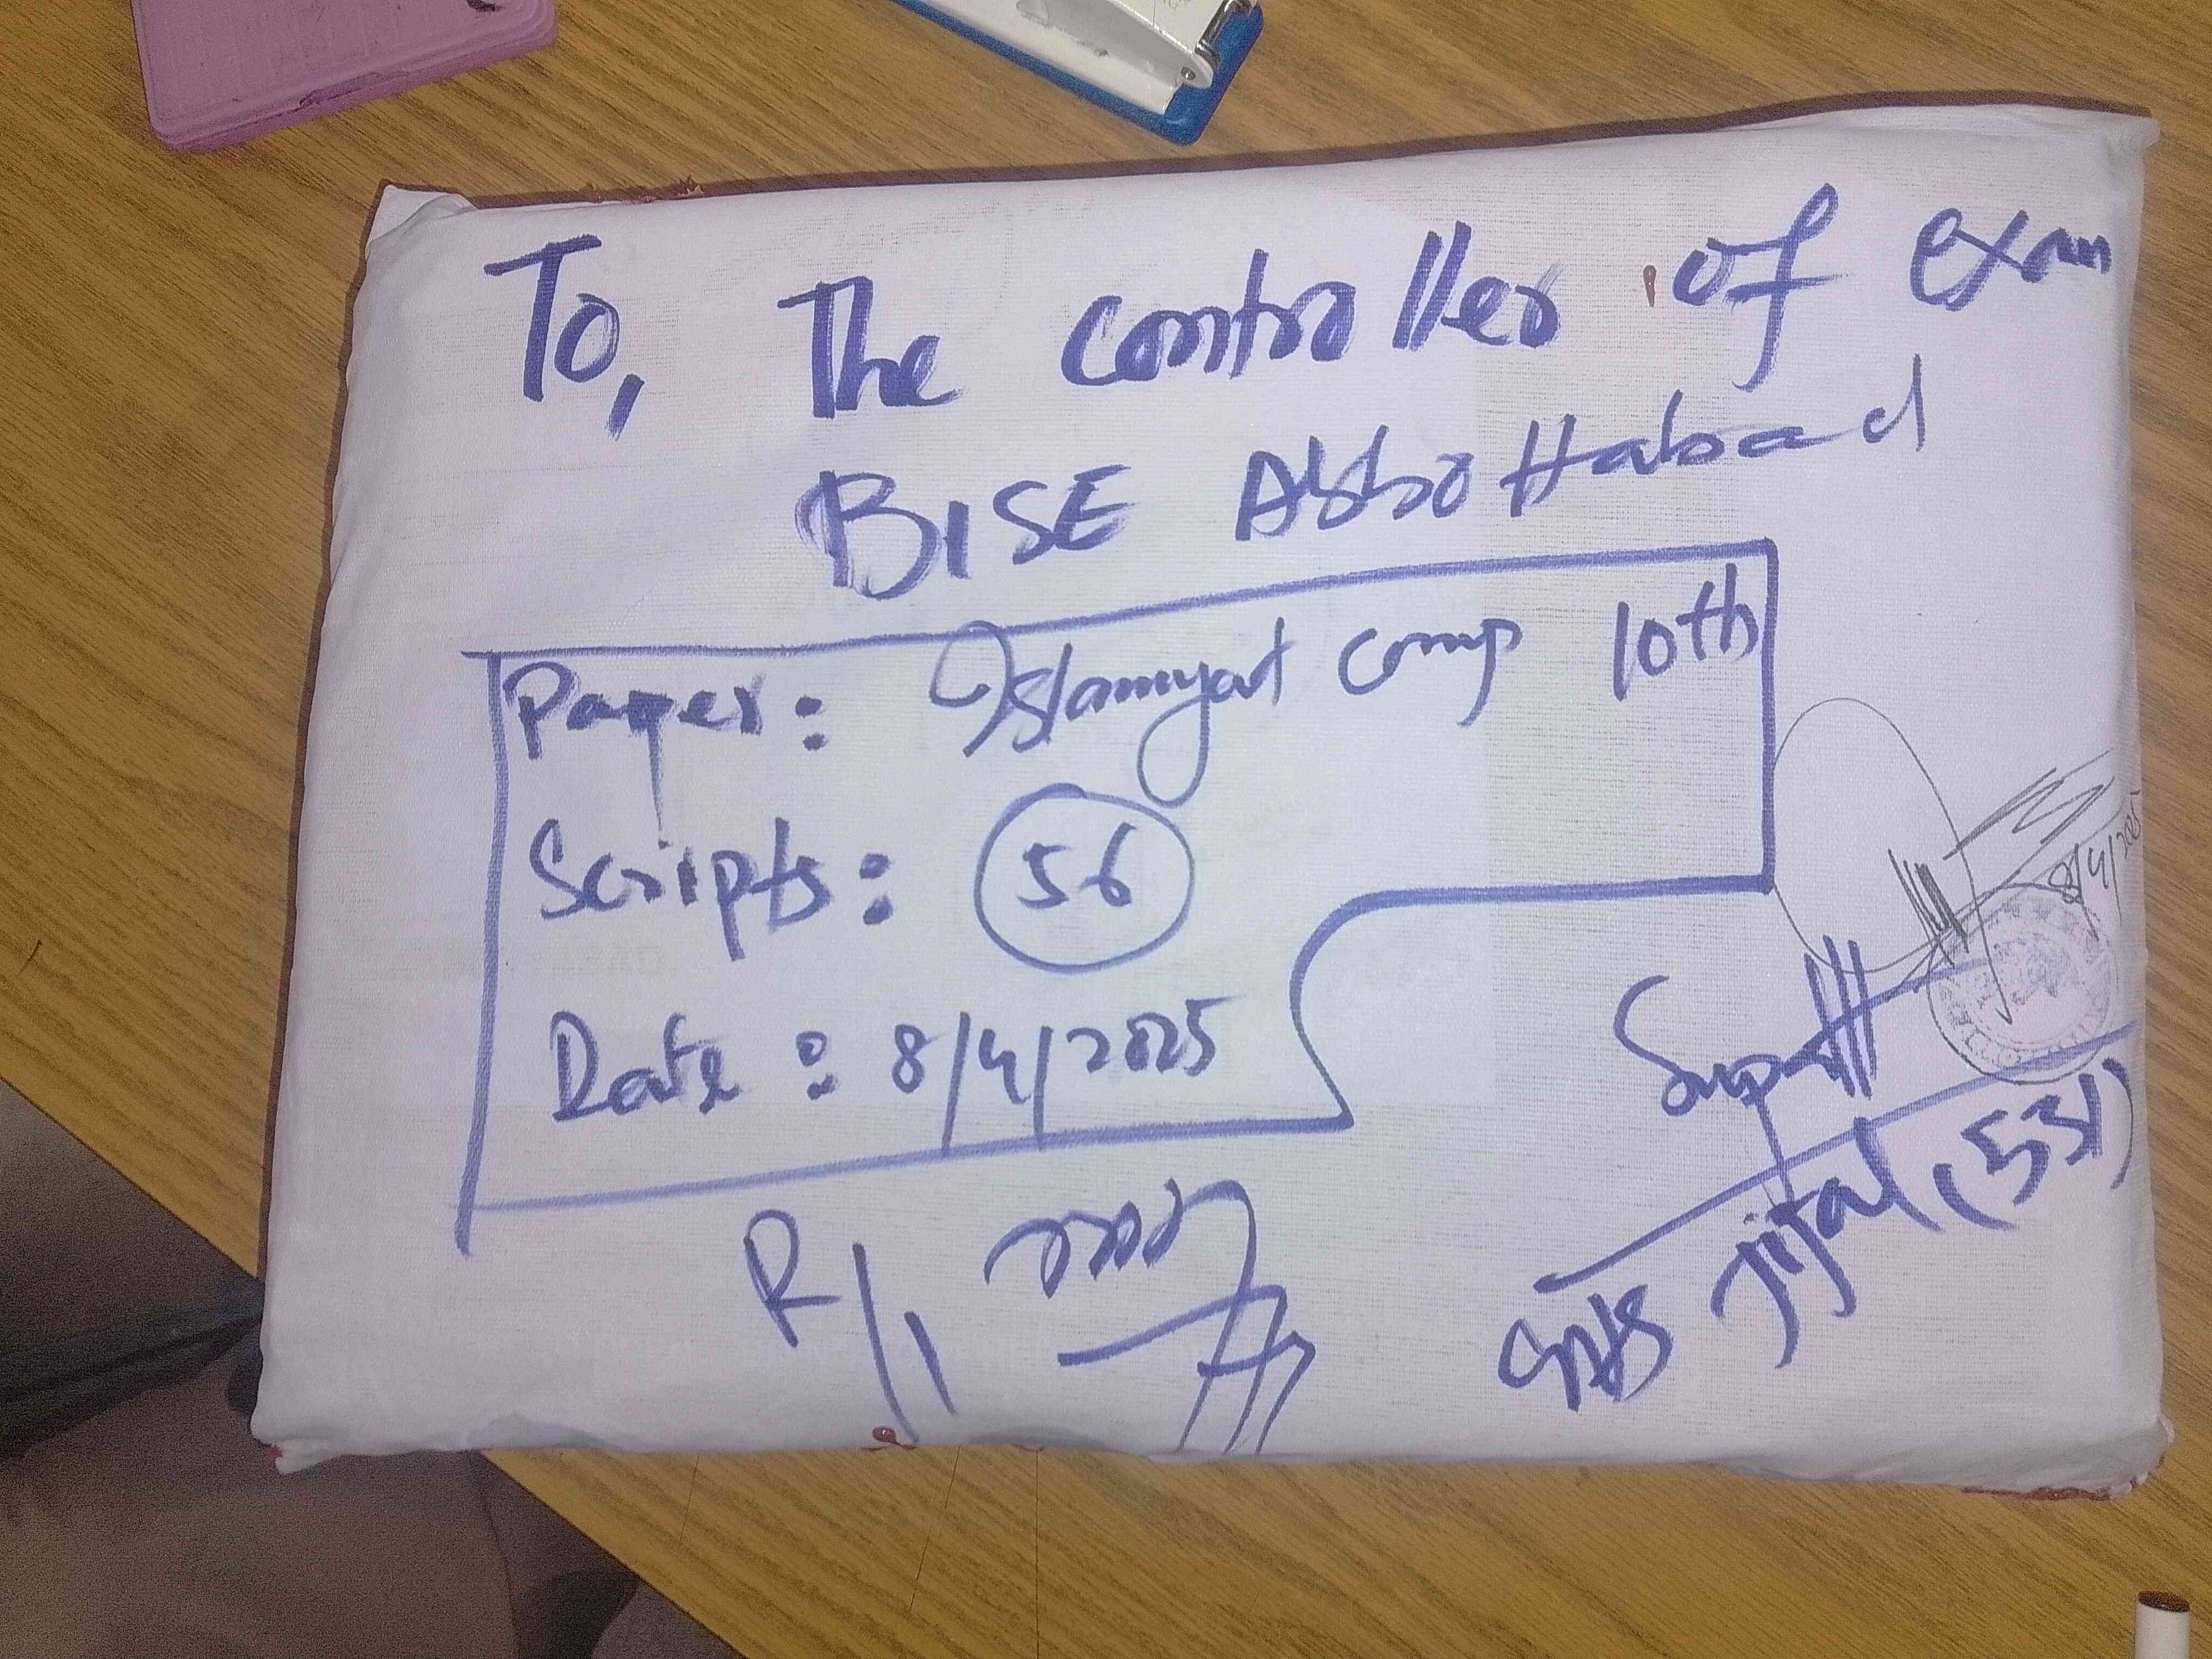 To, The controller of exam
BISE Abbottabad
Paper: Islamyat Comp 10th
Scripts: 56
Date: 8/4/2025
8/4/2025
Supdtt
GHS Jijal (531)
R/I